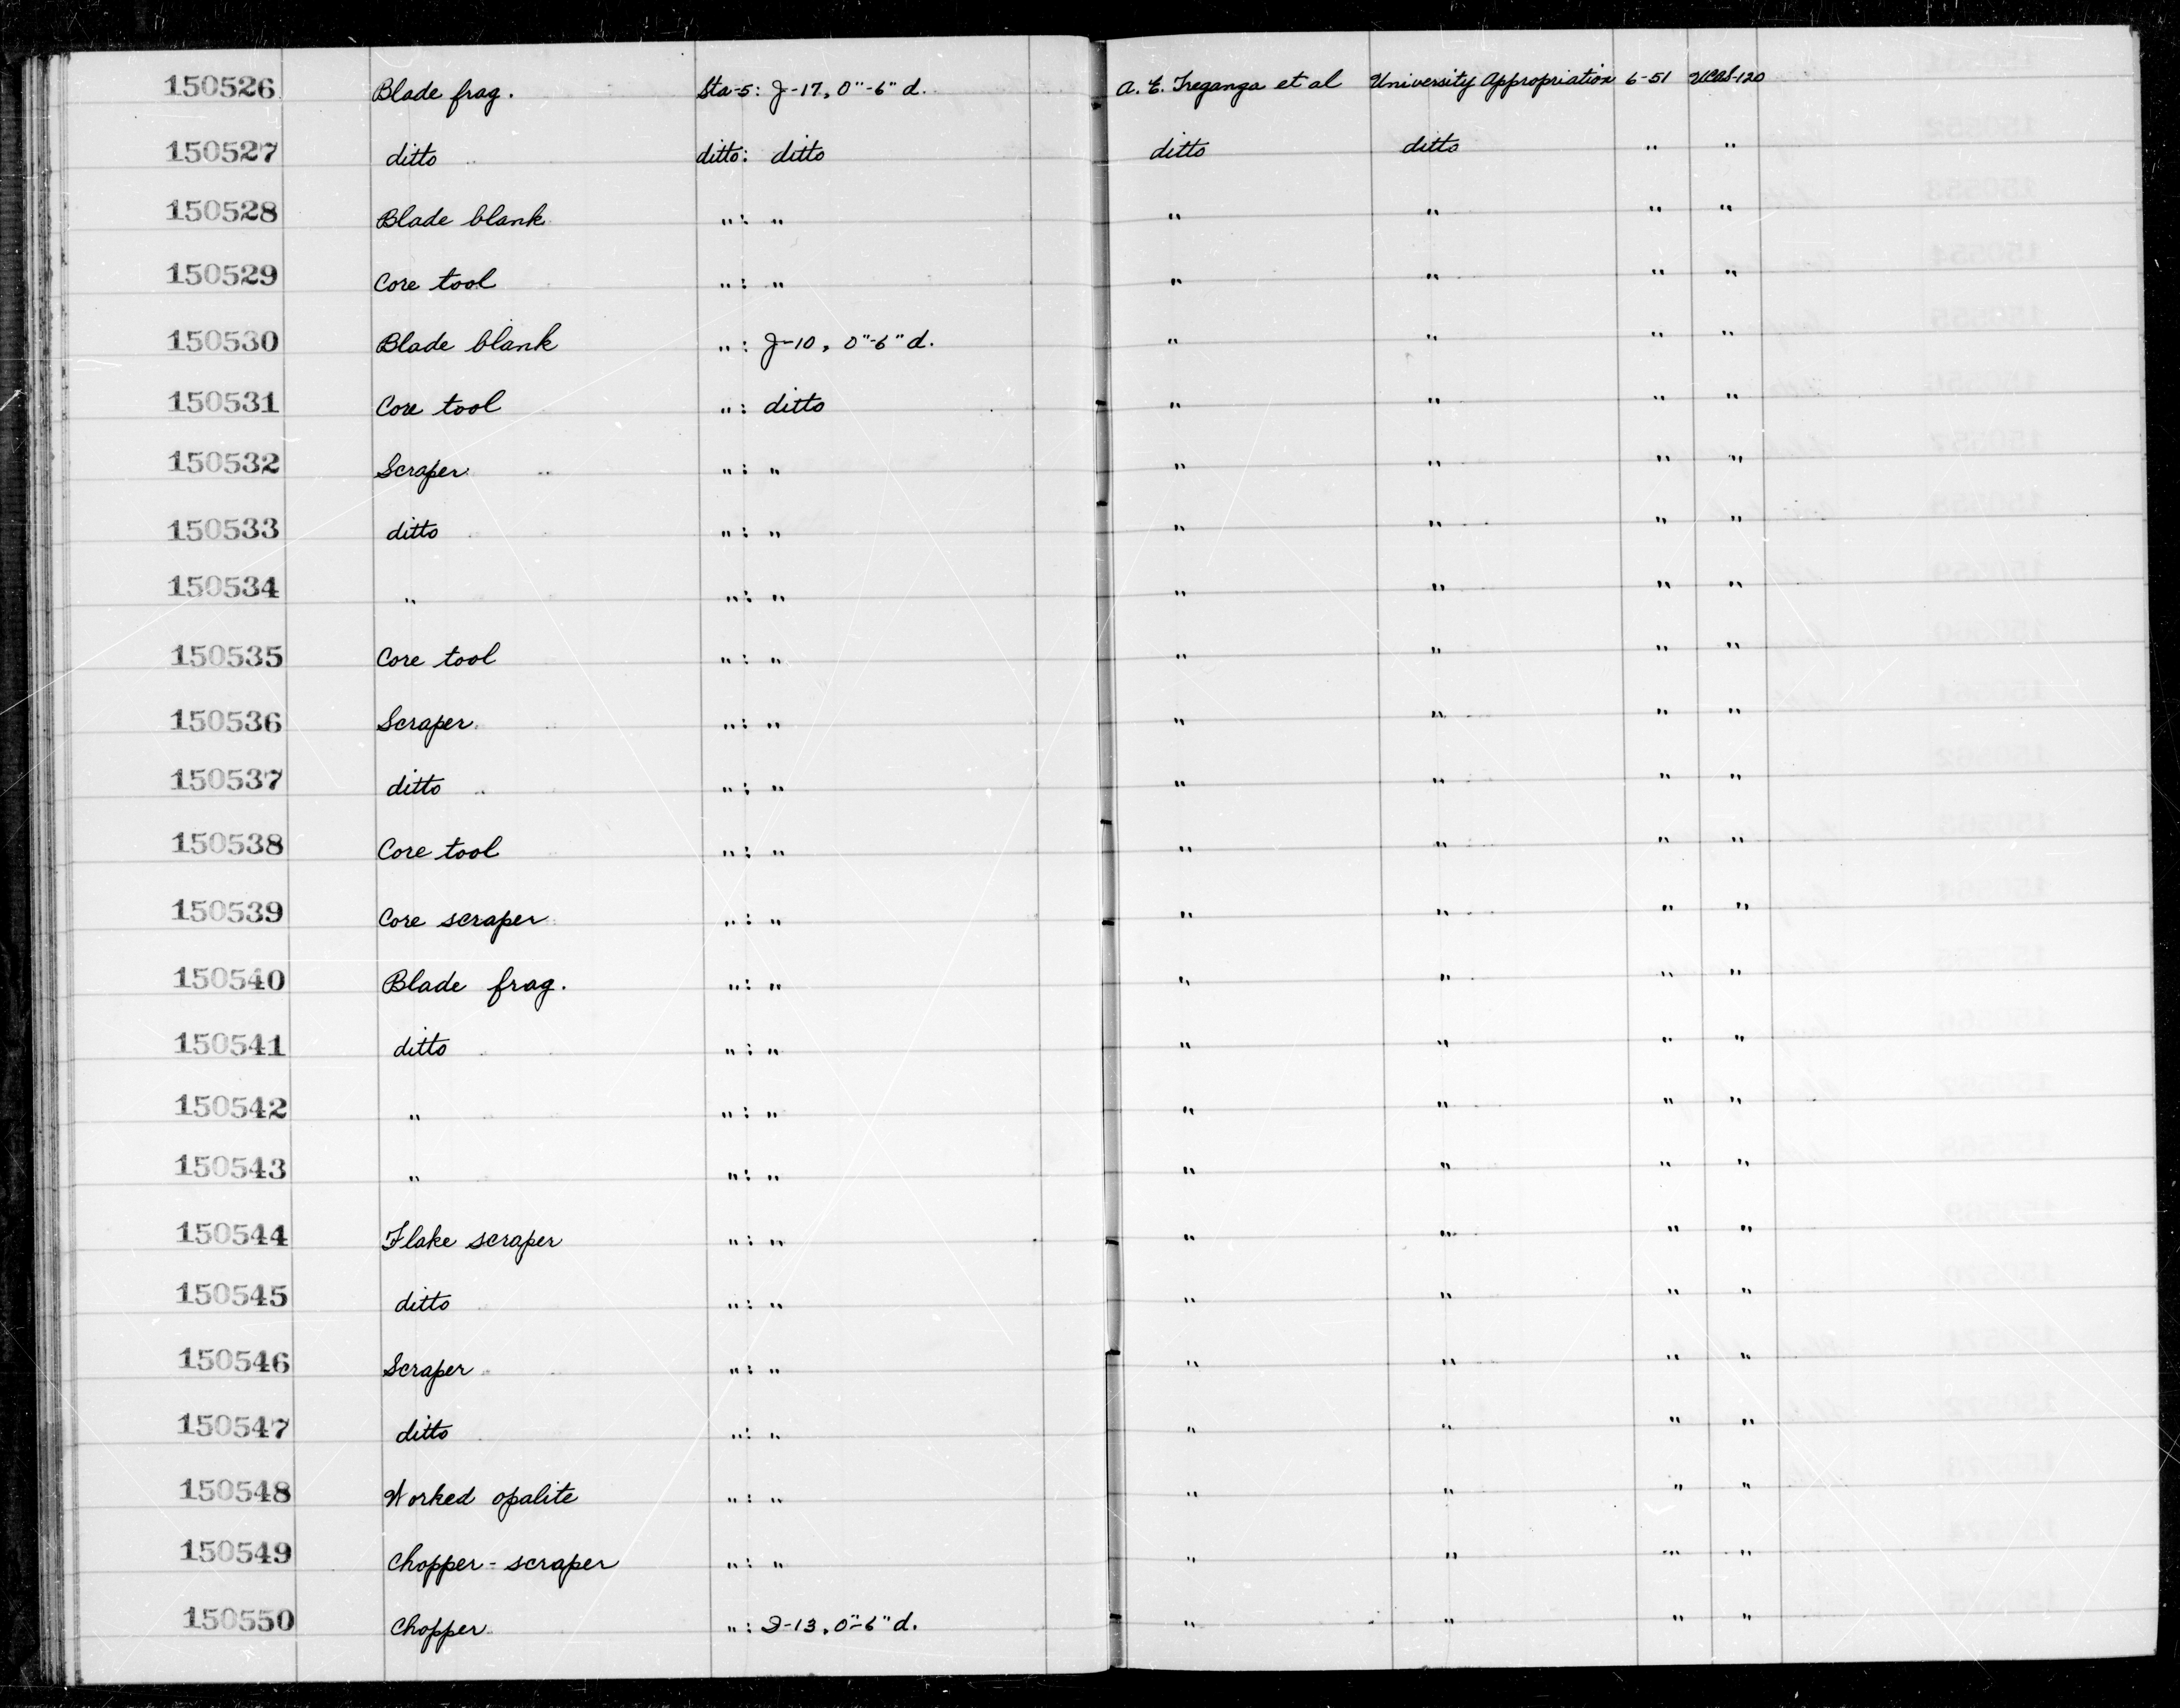 150526 Blade frag. Sta-5: J-17, 0"-6" d. A. E. Treganza et al University Appropriation 6-51 UCAS-120
150527 ditto ditto: ditto ditto ditto " "
150528 Blade blank " : " " " " "
150529 Core tool " : " " " " "
150530 Blade blank " : J-10, 0"-6" d. " " " "
150531 Core tool " : ditto " " " "
150532 Scraper " : " " " " "
150533 ditto " : " " " " "
150534 " " : " " " " "
150535 Core tool " : " " " " "
150536 Scraper " : " " " " "
150537 ditto " : " " " " "
150538 Core tool " : " " " " "
150539 Core scraper " : " " " " "
150540 Blade frag. " : " " " " "
150541 ditto " : " " " " "
150542 " " : " " " " "
150543 " " : " " " " "
150544 Flake scraper " : " " " " "
150545 ditto " : " " " " "
150546 Scraper " : " " " " "
150547 ditto " : " " " " "
150548 Worked opalite " : " " " " "
150549 Chopper-scraper " : " " " " "
150550 Chopper " : I-13, 0"-6" d. " " " "